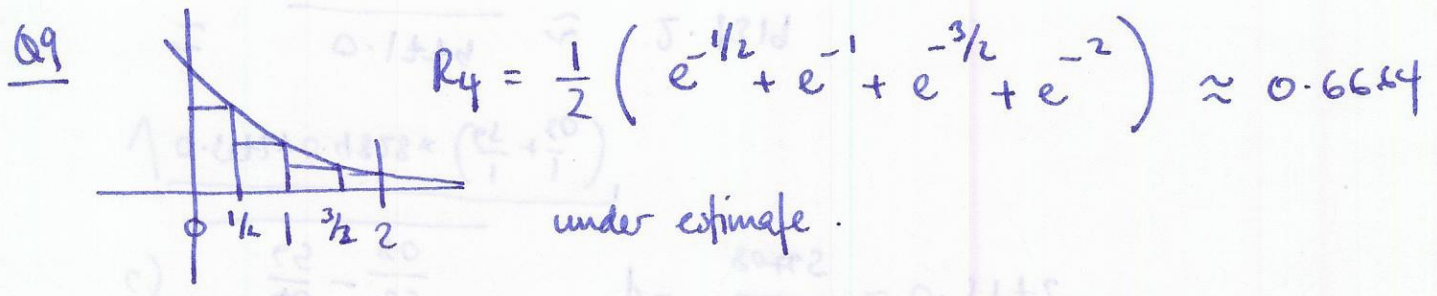 Q9
R₄ = 1/2 ( e^{-1/2} + e^{-1} + e^{-3/2} + e^{-2} ) ≈ 0.6664
0 1/2 1 3/2 2
under estimate.